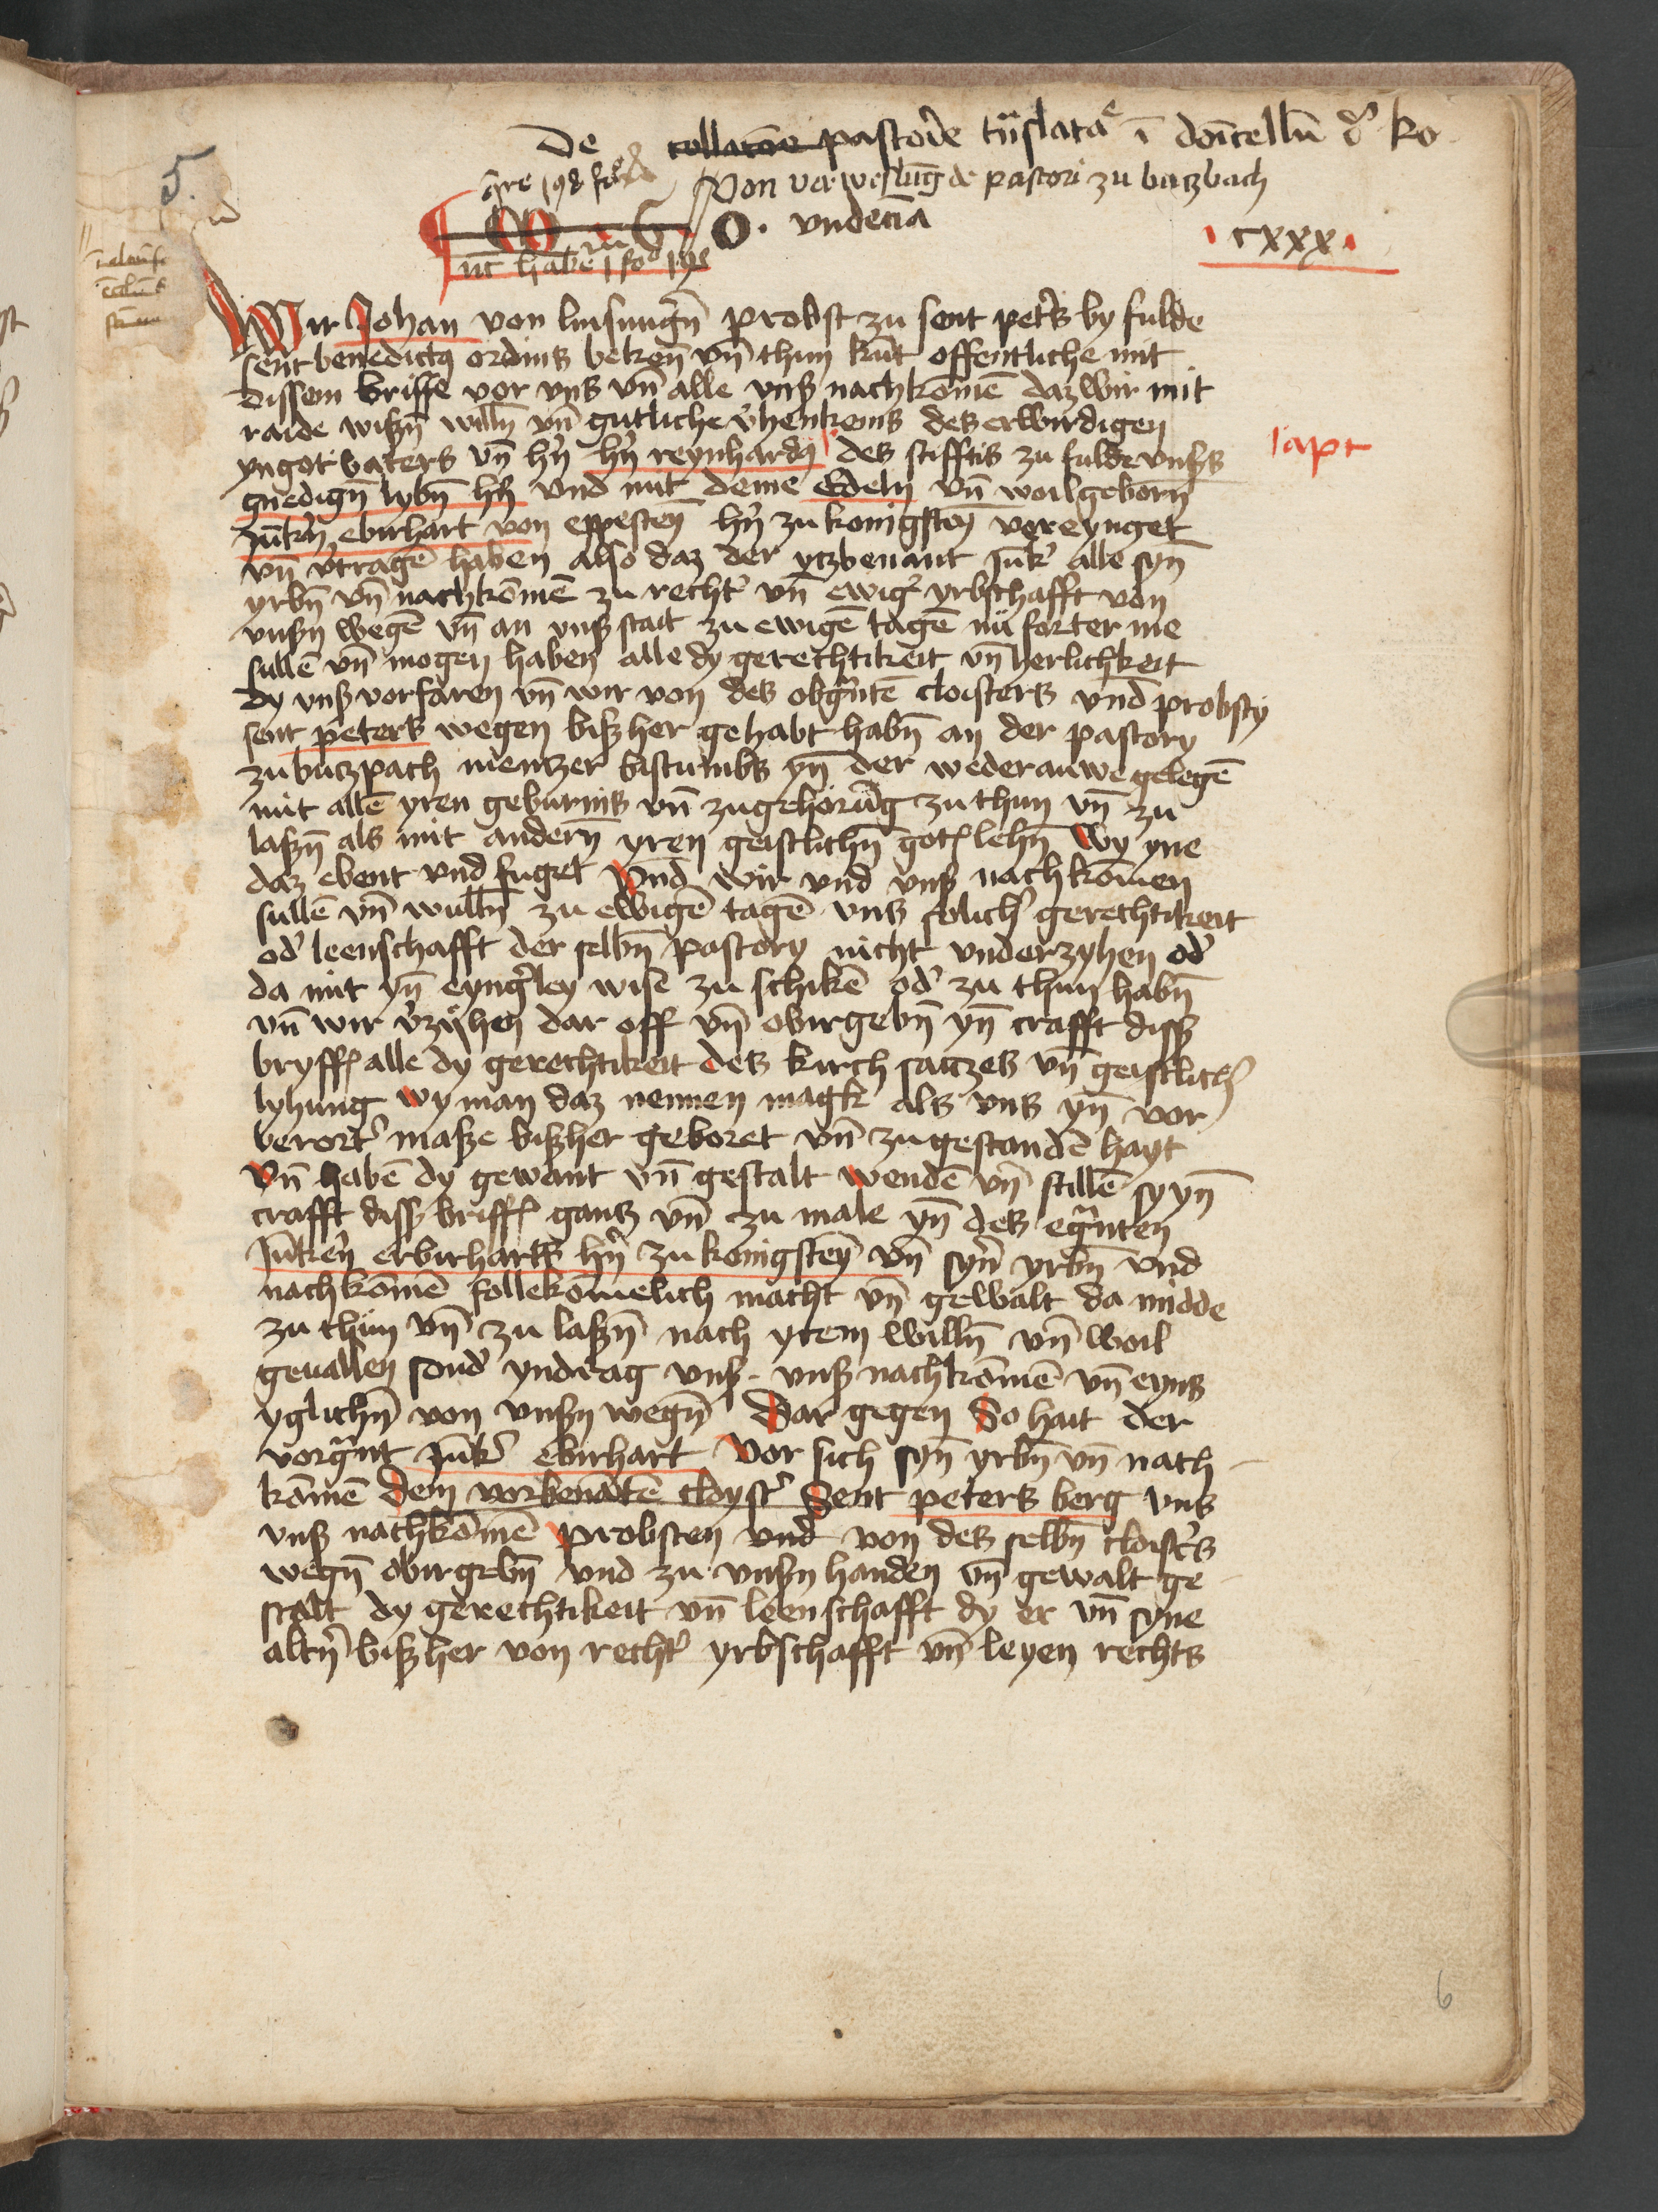 5.
De collacõe pastorie tñslata ĩ doĩcellũ d' ko
Von verweslũg de pastori zu butzbach
O. vndecĩa
CXXX
Wir Johan von linsungñ probst zu sent peters by fulde
sent benedictꝯ ordins bekeñ vñ thun kũt offentliche mit
dissem briffe vor vns vñ alle vnß nachkomẽ daz wir mit
raide wißñ willñ vñ gutliche v'henkenis des erwirdigen
yn got vaters vñ hñ hñ reynhardꝯ des stifftis zu fulde vnßs
gnedigñ lybñ hñ vnd mit deme Edeln vñ woilgeborñ
Jũkñ ebirhart von eppesteỹ hñ zu konigsteỹ vereynget
vñ v'tragẽ haben also daz der ytzbenant Jũk' alle syñ
yrbñ vñ nachkõmẽ zu recht' vñ ewig' yrbschafft von
vnßn wegẽ vñ an vnß stait zu ewigẽ tagẽ nü forter me
sullẽ vñ mogen haben alle dy gerechtikeit vñ herlichkeit
dy vnß vorfaren vñ wir von des obgñtẽ cloisters vnd probsty
sent peters wegen bißher gehabt habñ an der pastory
zu butzpach mentzer bistumbs yñ der wederauwe gelegẽ
mit allẽ yren geburnis vñ zugehorũg zu thun vñ zu
laßñ als mit anderñ yren geistlichñ gotslehñ Wy yne
daz ebent vnd fuget Vnd wir vnd vnß nachkomen
sullẽ vñ wullñ zu ewigẽ tagẽ vns solich' gerechtikeit
od' leenschafft der selbñ pastory nicht vnderzyhen od'
da mit yñ eyng'ley wise zu schikẽ od' zu thun habñ
vñ wir v'zyhen dar off vñ obirgebñ yñ crafft diss
bryffs alle dy gerechtikeit des kirch satzes vñ geistlich'
lyhung wy man daz nennen magk als vns yñ vor
berort' maße bißher geboret vñ zugestandẽ hayt
vñ habẽ dy gewant vñ gestalt wendẽ vñ stillẽ sy yñ
crafft diss briffs gantz vñ zu male yñ des egñnten
Jũkeñ erbirharts hñ zu konigsteỹ vñ syñ yrbñ vnd
nachkõmẽ follekõmelich macht vñ gewalt da midde
zu thün vñ zu laßñ nach yrem willñ vñ woil
geuallen sond' yndrag vnß vnß nachkõmẽ vñ eyns
yglichñ von vnßn wegñ Dar gegen So hait der
vorgñnt Jũk' ebirhart vor sich syñ yrbñ vñ nach
kõmẽ dem vorbenãtẽ cloyst' Sent peters berg vns
vnß nachkõmẽ probsten vnd von des selbñ cloist's
wegñ obirgebñ vnd zu vnßn handen vñ gewalt ge
stalt dy gerechtikeit vñ leenschafft dy er vñ syne
altñ bißher von recht' yrbschafft vñ leyen rechts
6